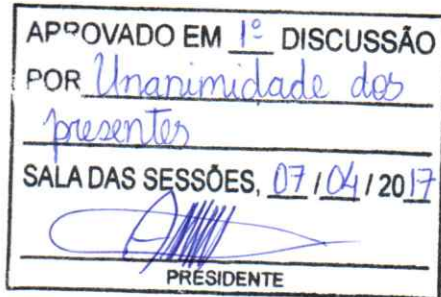 APROVADO EM 1º DISCUSSÃO
POR Unanimidade dos
presentes
SALA DAS SESSÕES, 07 / 04 / 2017
PRESIDENTE